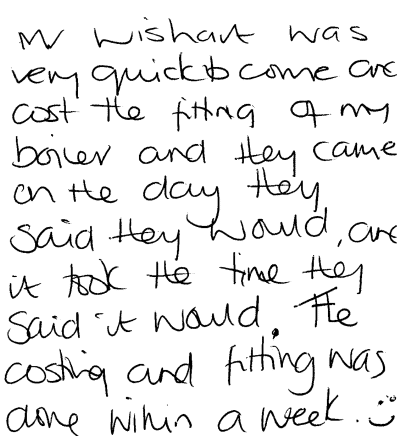 Mr Wishart was
very quick to come and
cost the fitting of my
boiler and they came
on the day they
said they would, and
it took the time they
said it would. The
costing and fitting was
done within a week. :)